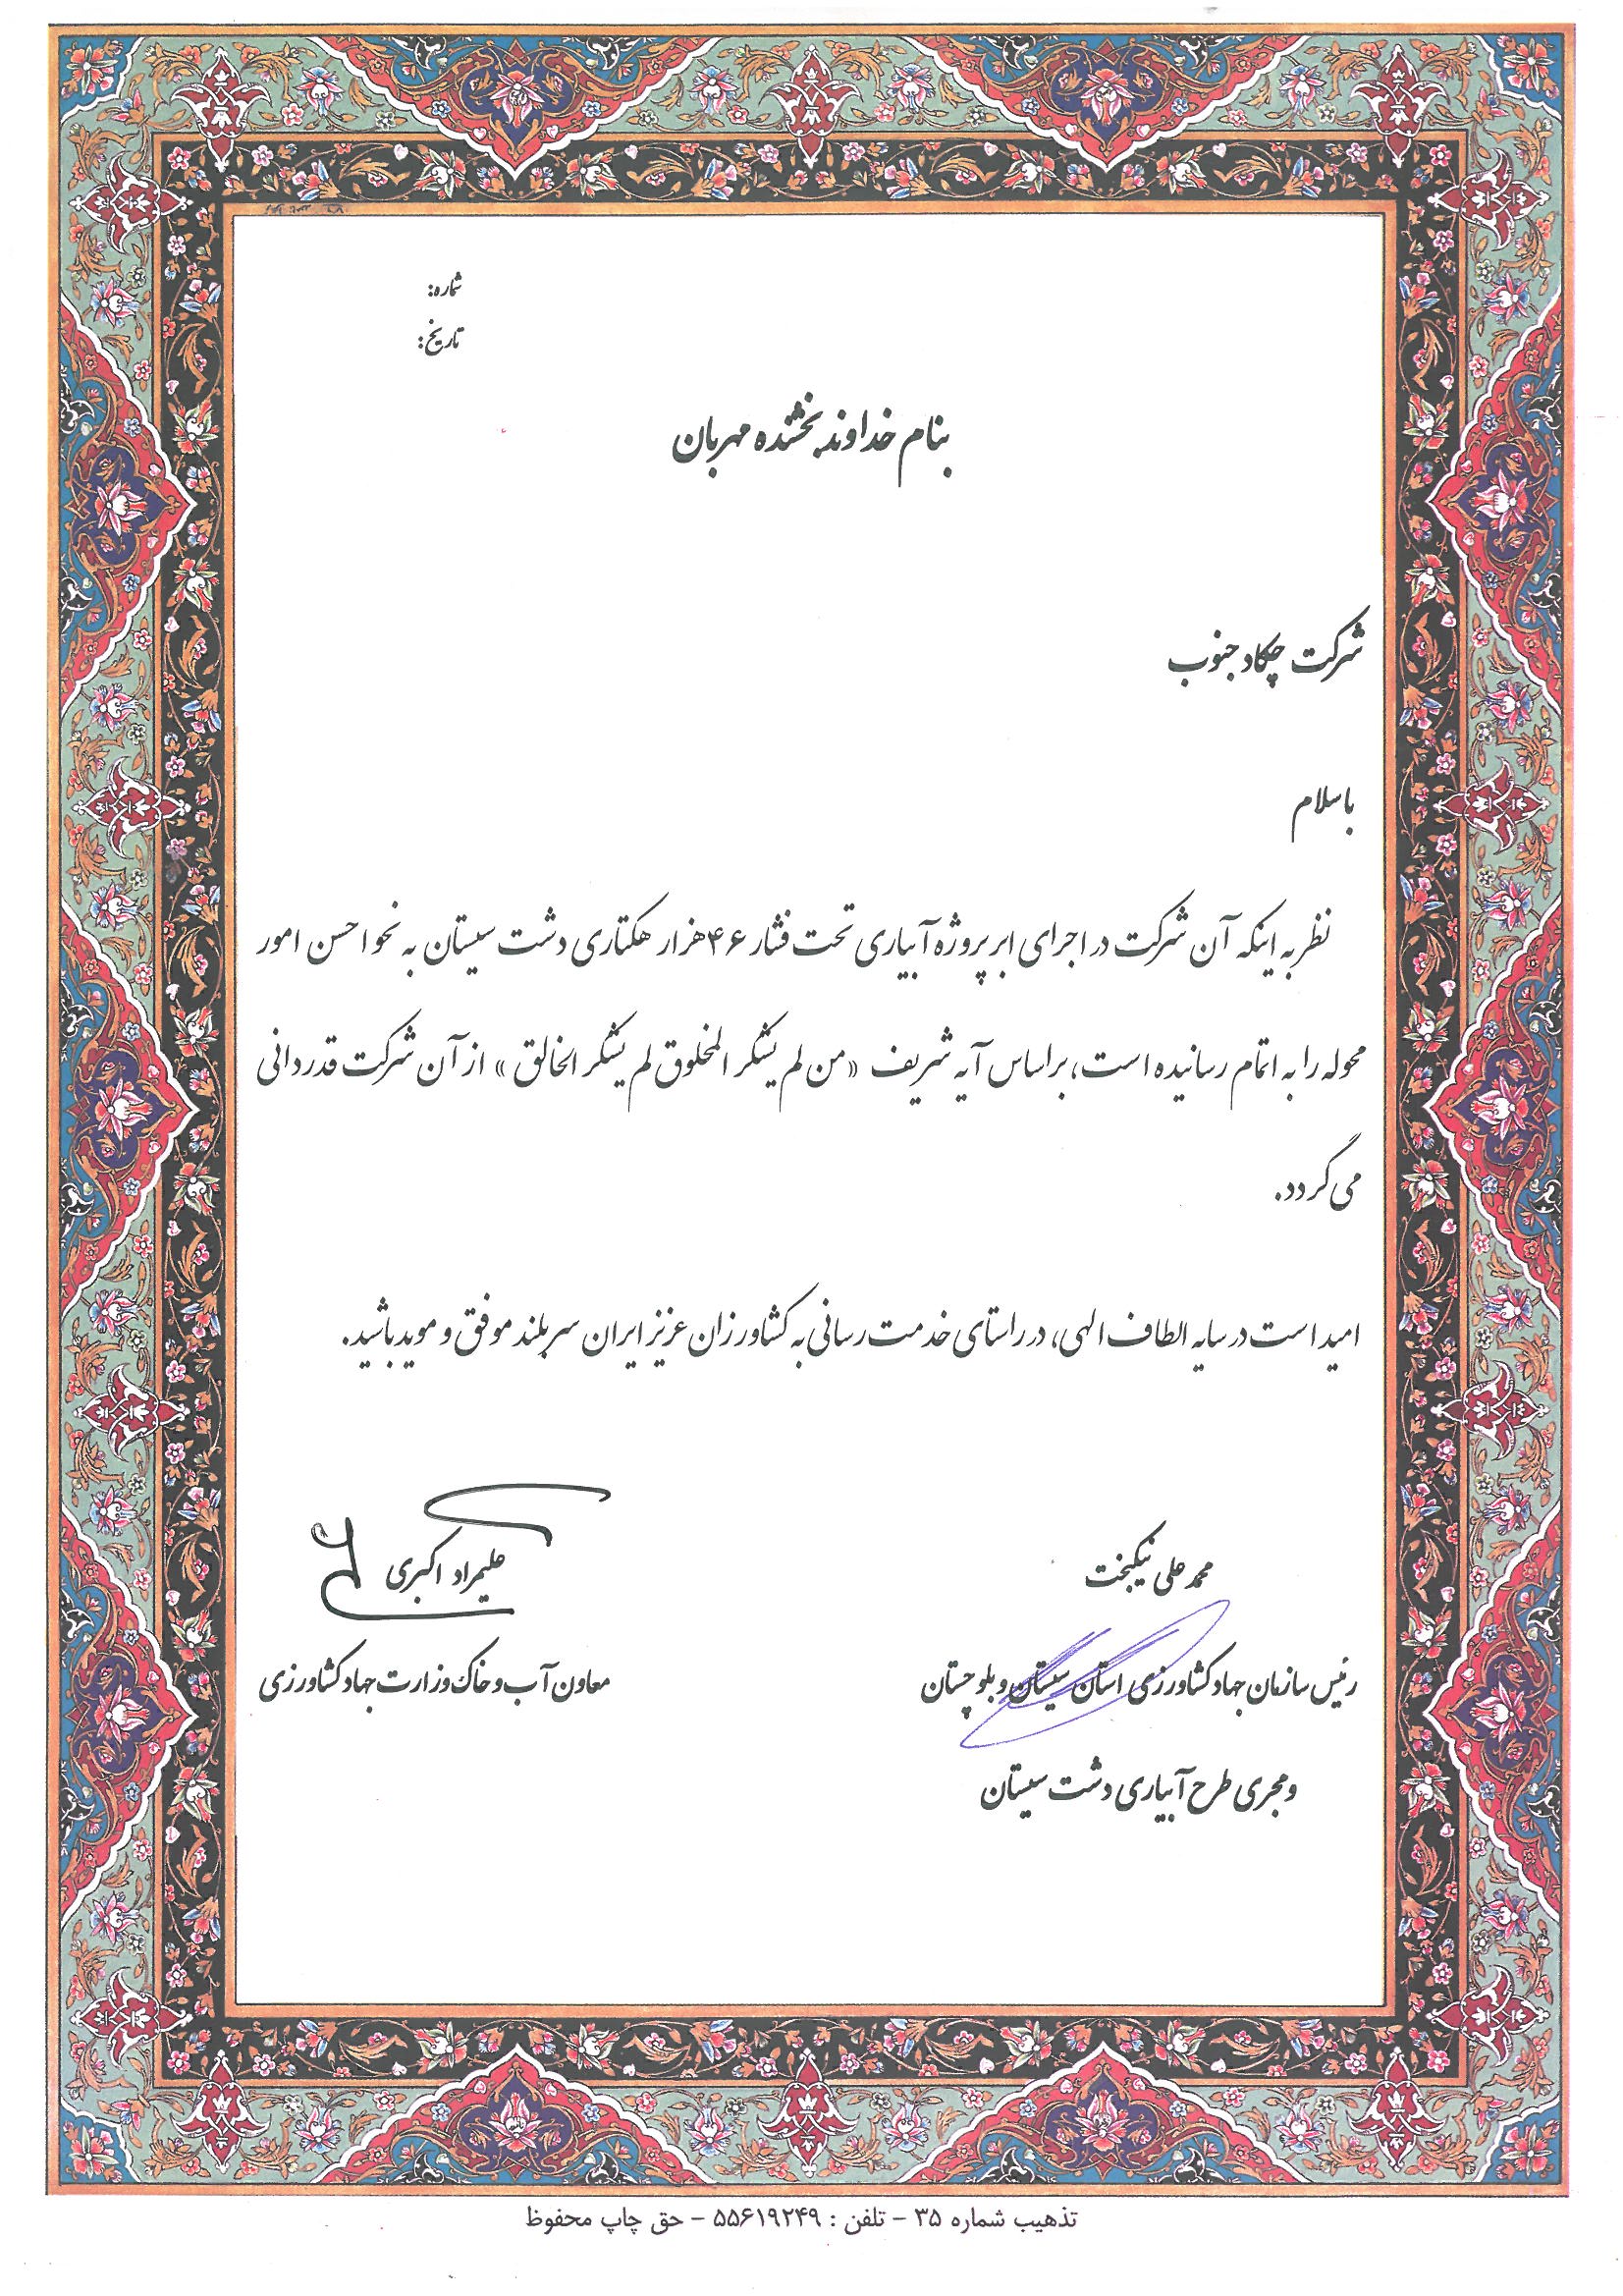 شماره:
تاریخ:
بنام خداوند بخشنده مهربان
شرکت چکاد جنوب
با سلام
نظر به اینکه آن شرکت در اجرای ابر پروژه آبیاری تحت فشار ۴۶ هزار هکتاری دشت سیستان به نحو احسن امور
محوله را به اتمام رسانیده است، بر اساس آیه شریف «من لم یشکر المخلوق لم یشکر الخالق» از آن شرکت قدردانی
می گردد.
امید است در سایه الطاف الهی، در راستای خدمت رسانی به کشاورزان عزیز ایران سربلند موفق و موید باشید.
محمد علی نیکبخت
رئیس سازمان جهاد کشاورزی استان سیستان و بلوچستان
و مجری طرح آبیاری دشت سیستان
علیمراد اکبری
معاون آب و خاک وزارت جهاد کشاورزی
تذهیب شماره ۳۵ – تلفن : ۵۵۶۱۹۲۴۹ – حق چاپ محفوظ